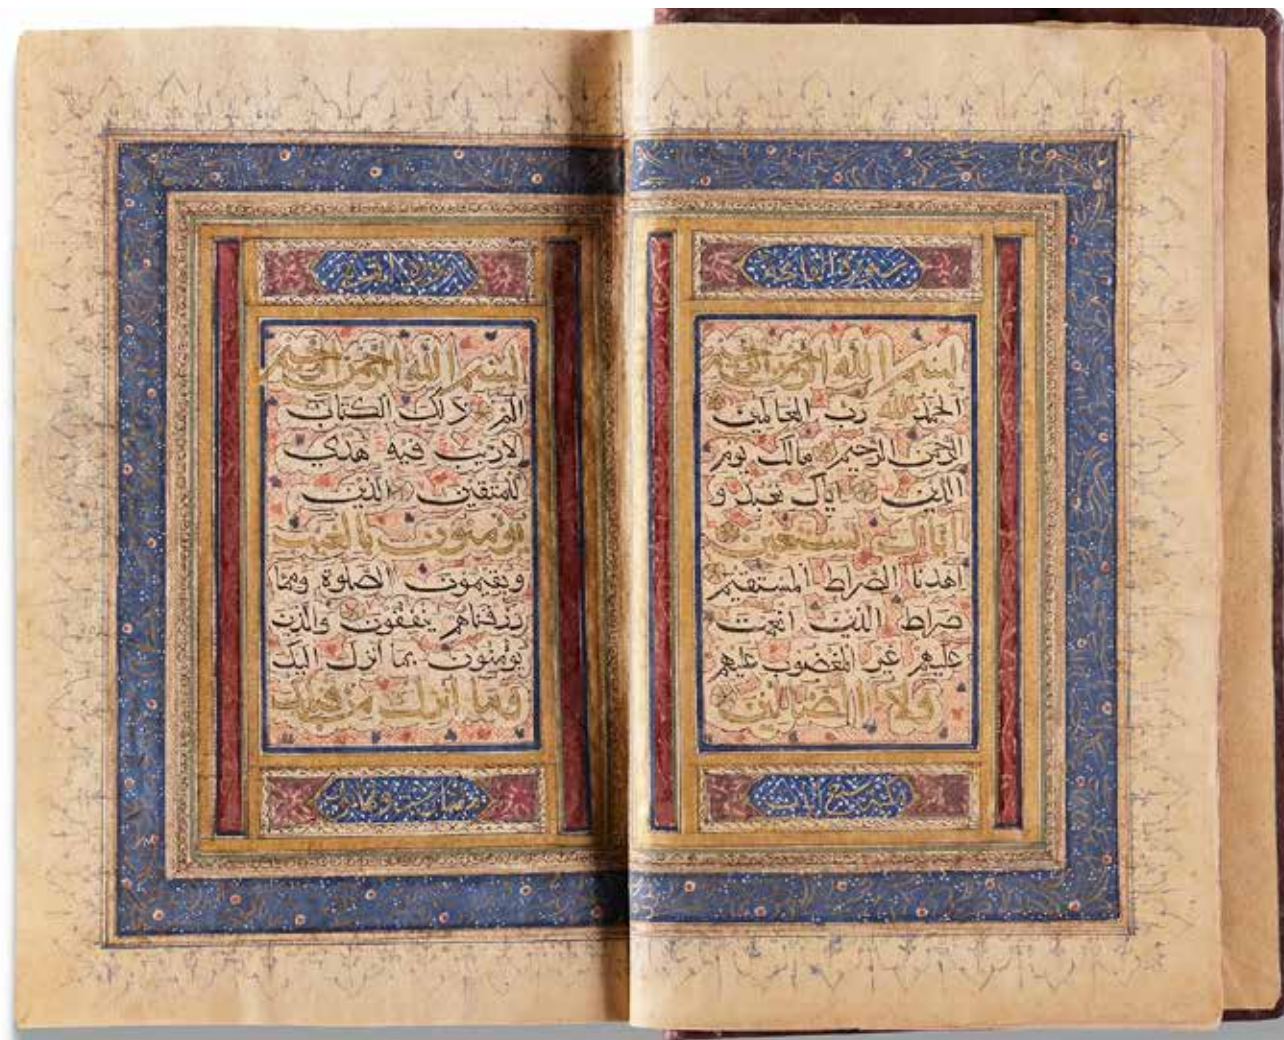 سورة الفاتحة
بسم الله الرحمن الرحيم
الحمد لله رب العالمين
الرحمن الرحيم مالك يوم
الدين اياك نعبد و
اياك نستعين
اهدنا الصراط المستقيم
صراط الذين انعمت
عليهم غير المغضوب عليهم
ولا الضالين
سورة البقرة
بسم الله الرحمن الرحيم
الم ذلك الكتاب
لاريب فيه هدى
للمتقين الذين
يؤمنون بالغيب
ويقيمون الصلوة ومما
رزقناهم ينفقون والذين
يؤمنون بما انزل اليك
وما انزل من قبلك